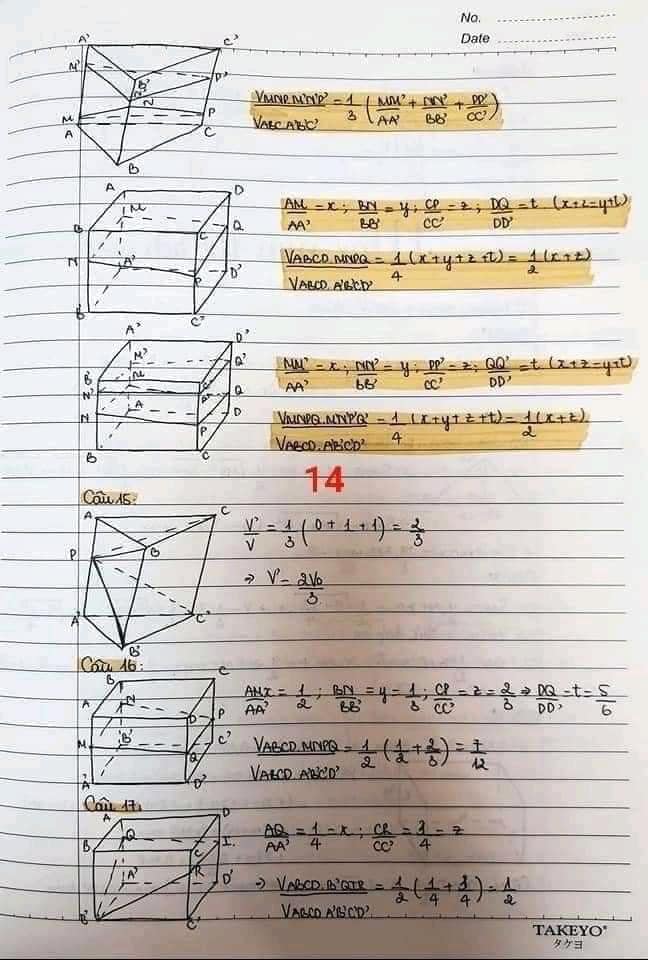 No.
Date
A' C'
M' D'
B'
N'
N
M P
A C
B
V_MNP.M'N'P' = 1/3 ( MM'/AA' + NN'/BB' + PP'/CC' )
V_ABC.A'B'C'
A D
M
B C Q
N A' P D'
B' C'
AM/AA' = x ; BN/BB' = y ; CP/CC' = z ; DQ/DD' = t (x+z=y+t)
V_ABCD.MNPQ / V_ABCD.A'B'C'D' = 1/4 (x+y+z+t) = 1/2 (x+z)
A' D'
M' Q'
B' M
N' Q
N A P D
B C
MM'/AA' = x ; NN'/BB' = y ; PP'/CC' = z ; QQ'/DD' = t (x+z=y+t)
V_MNPQ.M'N'P'Q' / V_ABCD.A'B'C'D' = 1/4 (x+y+z+t) = 1/2 (x+z)
14
Câu 15:
A C
P B
A' C'
B'
V'/V = 1/3 ( 0 + 1 + 1 ) = 2/3
⇒ V' = 2V₀/3
Câu 16:
B C
A N D P
M B' Q C'
A' D'
AM/AA' x = 1/2 ; BN/BB' = y = 1/3 ; CP/CC' = z = 2/3 ⇒ DQ/DD' = t = 5/6
V_ABCD.MNPQ / V_ABCD.A'B'C'D' = 1/2 ( 1/2 + 2/3 ) = 7/12
Câu 17:
A D
Q I
B C
A' R D'
B' C'
AQ/AA' = 1/4 = x ; CR/CC' = 3/4 = z
⇒ V_ABCD.B'QIR / V_ABCD.A'B'C'D' = 1/2 ( 1/4 + 3/4 ) = 1/2
TAKEYO®
タケヨ